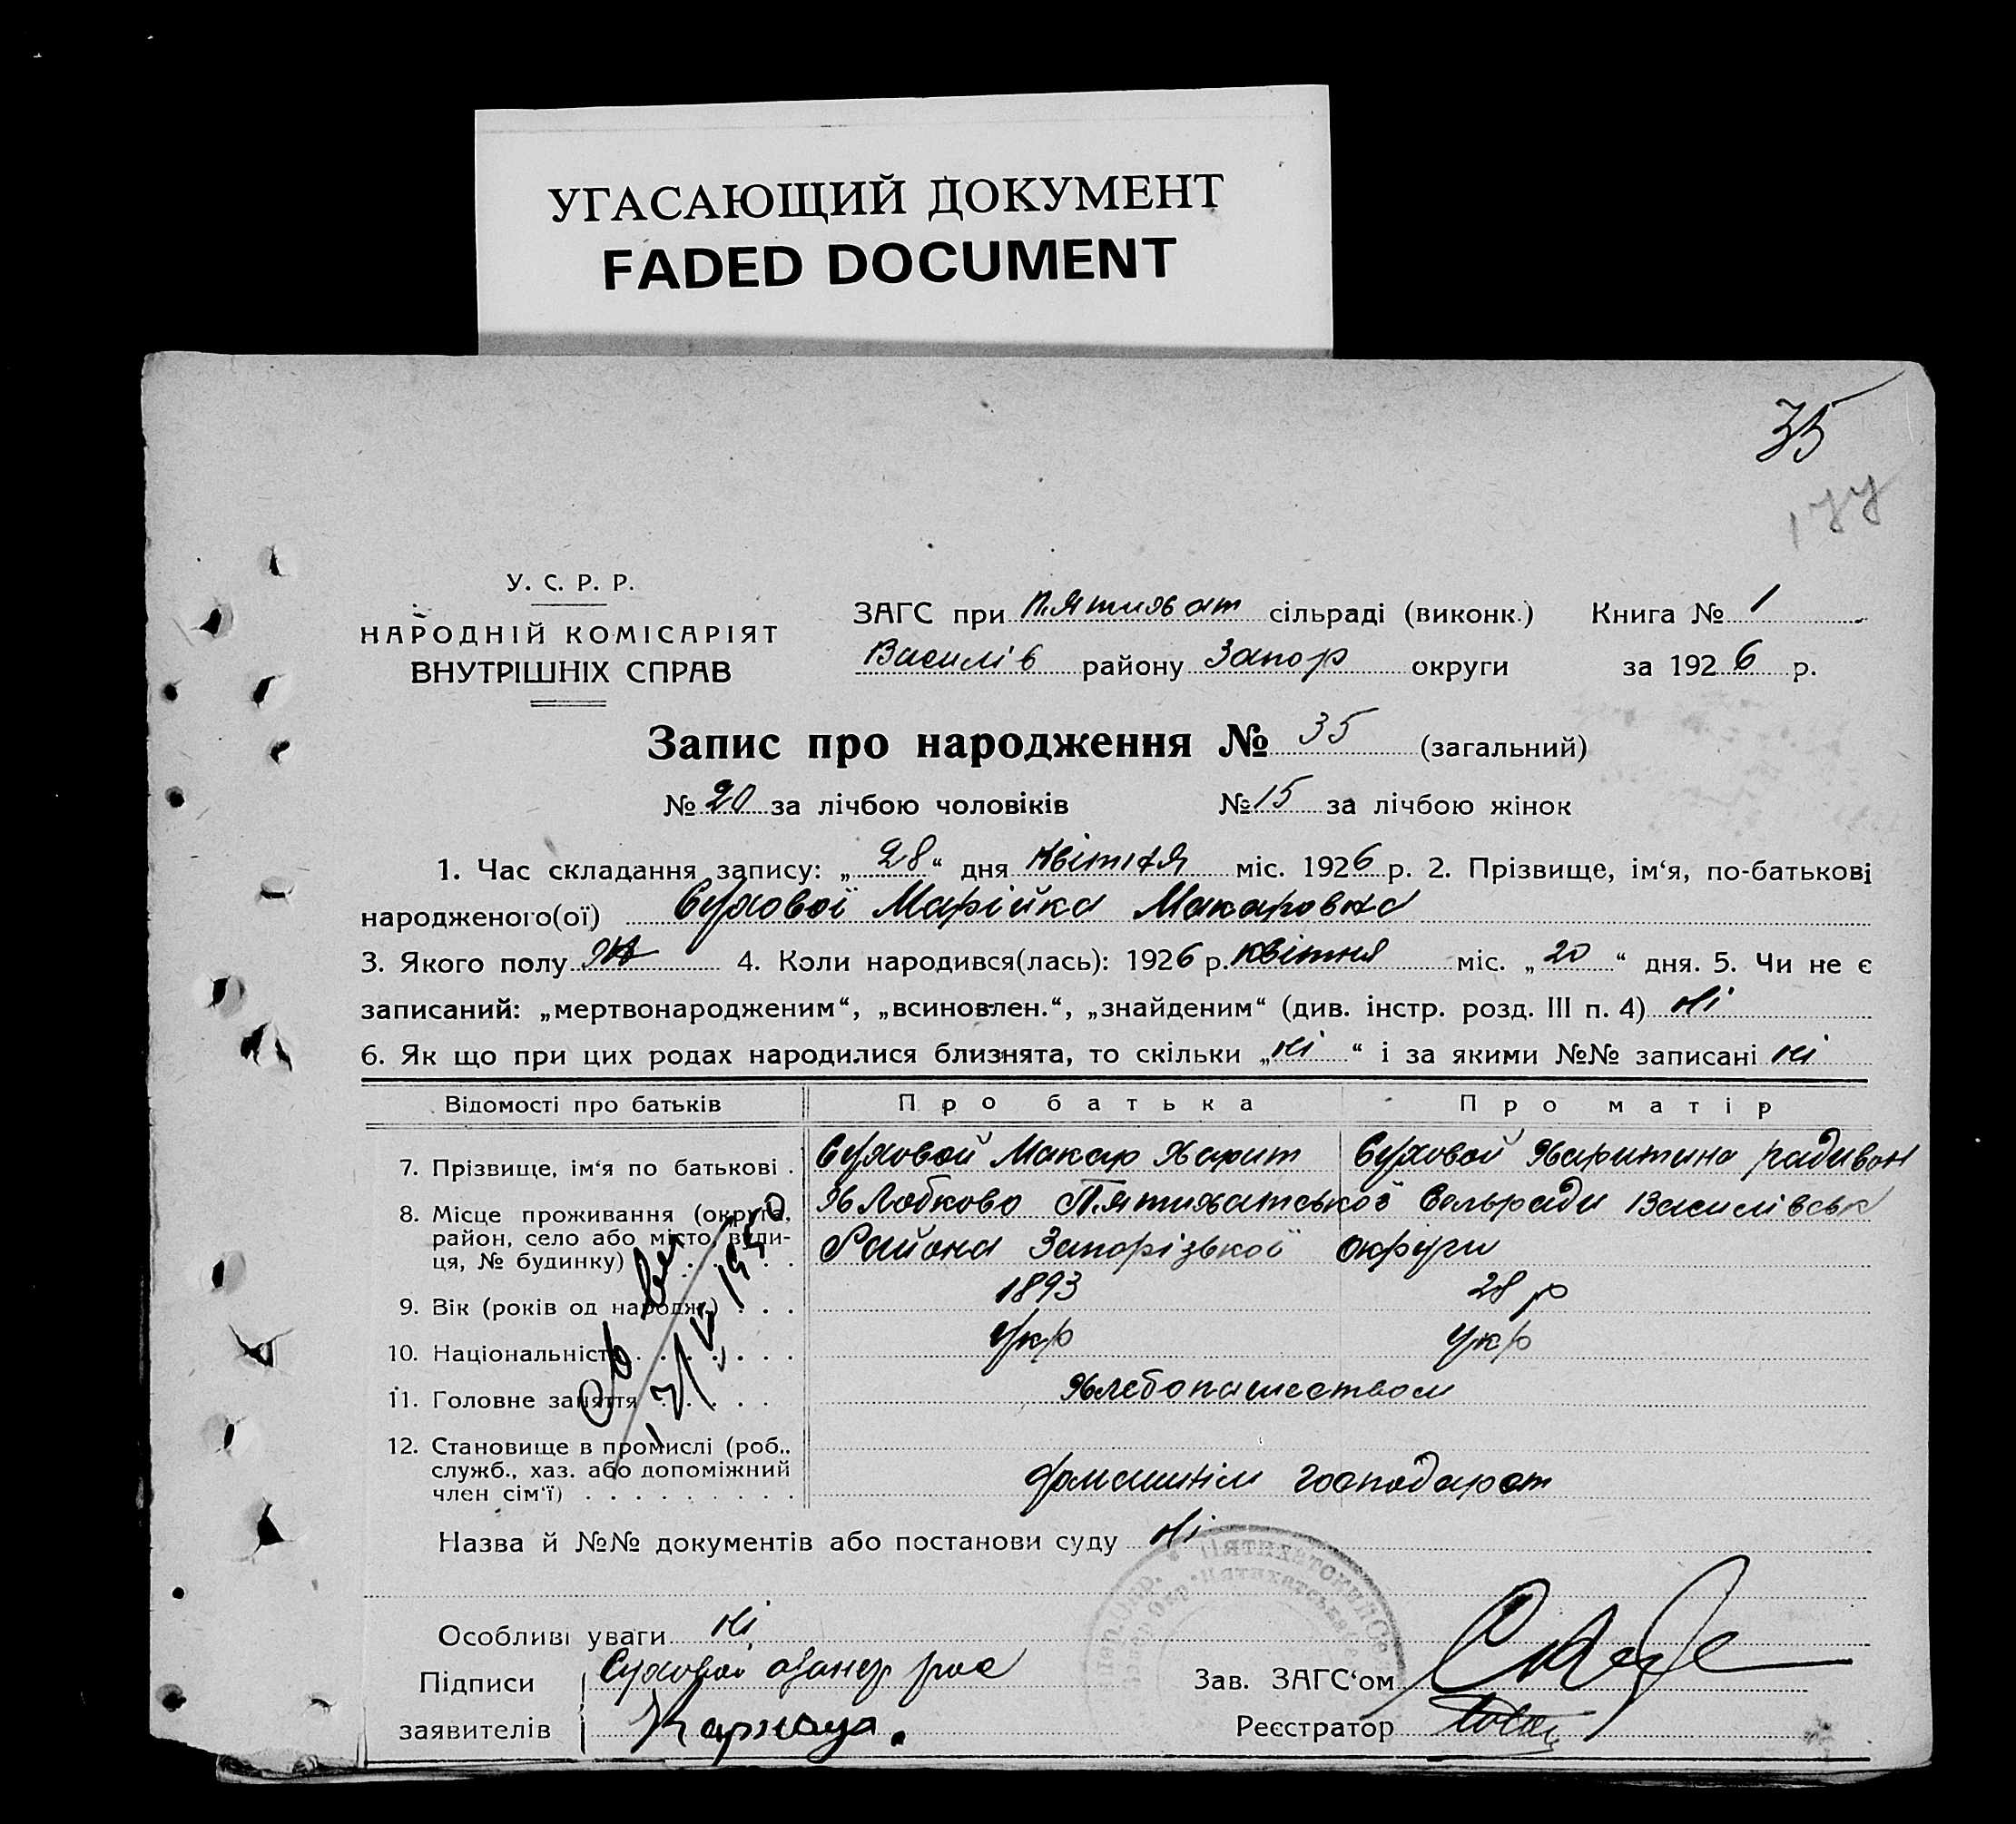 УГАСАЮЩИЙ ДОКУМЕНТ
FADED DOCUMENT
35
177
У. С. Р. Р.
НАРОДНІЙ КОМІСАРІЯТ
ВНУТРІШНІХ СПРАВ
ЗАГС при П.ятихат сільраді (виконк.) Книга № 1
Василів району Запор округи за 1926 р.
Запис про народження № 35 (загальний)
№ 20 за лічбою чоловіків № 15 за лічбою жінок
1. Час складання запису: „28“ дня квітня міс. 1926 р. 2. Прізвище, ім‘я, по-батькові
народженого(ої) Суховой Марійка Макаровна
3. Якого полу Ж 4. Коли народився(лась): 1926 р. квітня міс. „20“ дня. 5. Чи не є
записаний: „мертвонародженим“, „всиновлен.“, „знайденим“ (див. інстр. розд. III п. 4) ні
6. Як що при цих родах народилися близнята, то скільки „ні“ і за якими №№ записані ні
Відомості про батьків Про батька Про матір
7. Прізвище, ім‘я по батькові . Суховой Макар Харит Суховой Харитина радивон
8. Місце проживання (округа, район, село або місто, вули-ця, № будинку) Х Лобково П.ятихатської Сельради Василівськ
Района Запорізької округи
9. Вік (років од народж.) . . . 1893 28 р
10. Національність . . . . . . . Укр Укр
11. Головне заняття . . . . . Хлебопашеством
12. Становище в промислі (роб., служб., хаз. або допоміжний член сім‘ї) . . . . . . . . . домашнім господарст
Назва й №№ документів або постанови суду ні
Особливі уваги ні
Підписи Суховой
заявителів
Зав. ЗАГС‘ом
Реєстратор